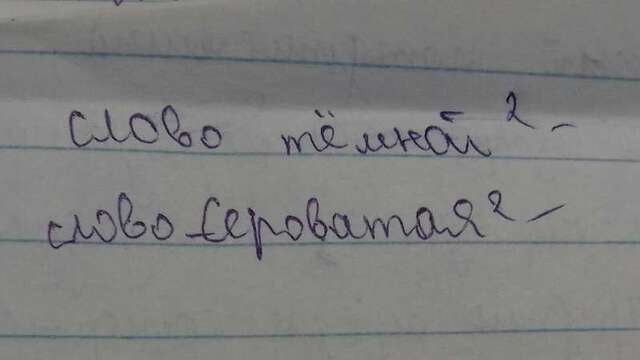 слово тёмная² –
слово сероватая² –